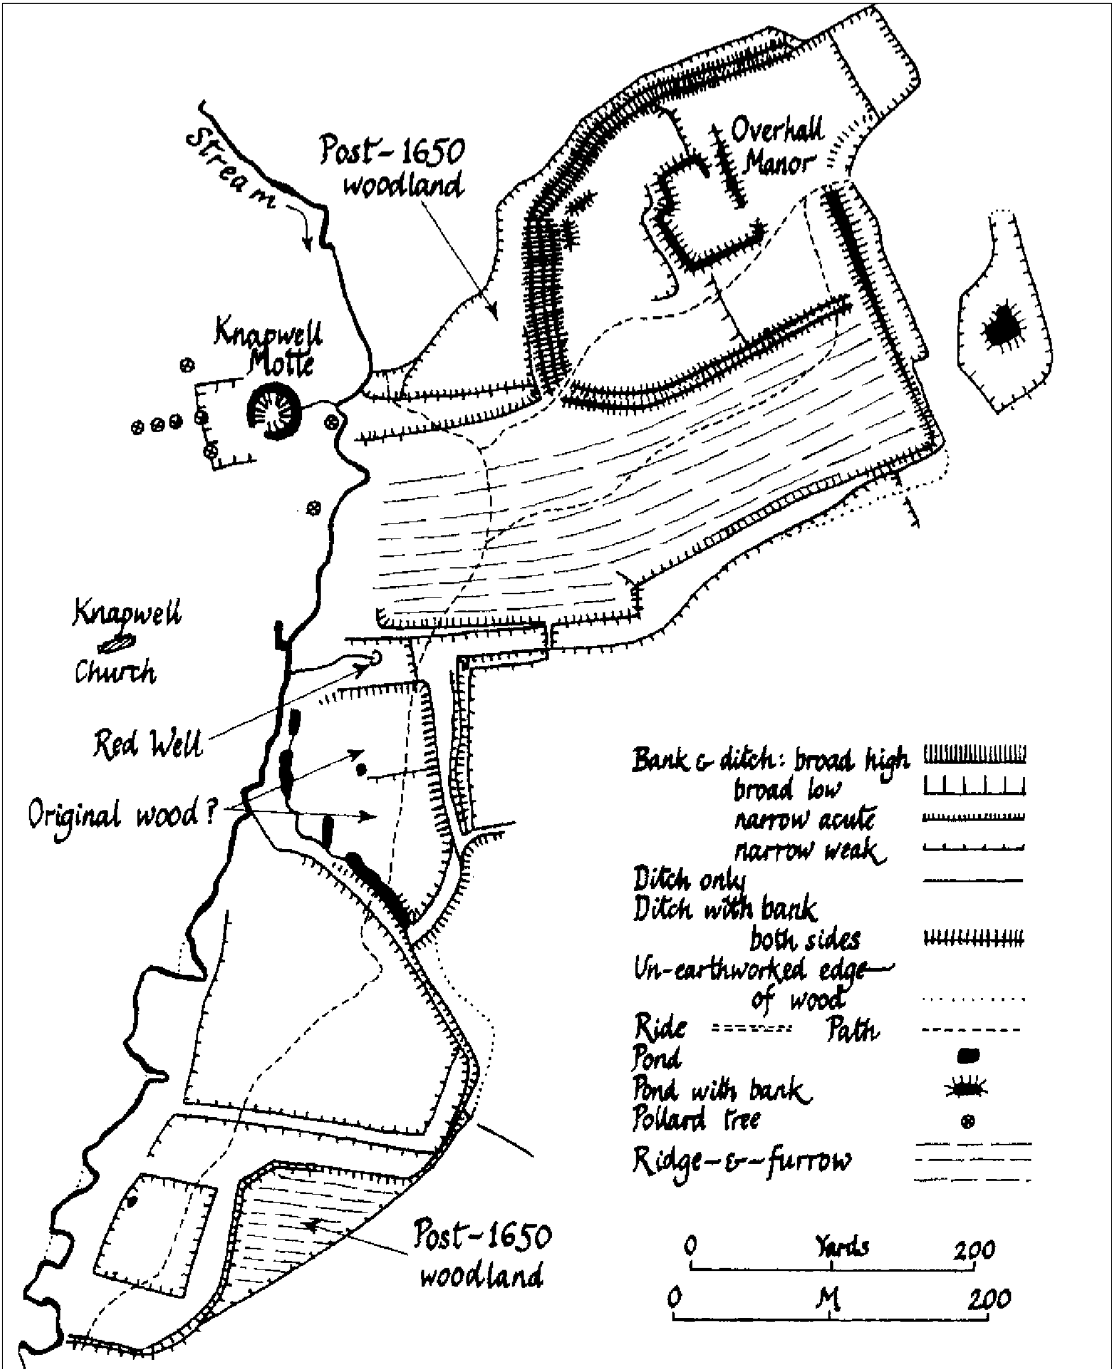 Stream
Post-1650
woodland
Overhall
Manor
Knapwell
Motte
Knapwell
Church
Red Well
Original wood?
Post-1650
woodland
Bank & ditch: broad high
broad low
narrow acute
narrow weak
Ditch only
Ditch with bank
both sides
Un-earthworked edge
of wood
Ride Path
Pond
Pond with bank
Pollard tree
Ridge-&-furrow
0 Yards 200
0 M 200